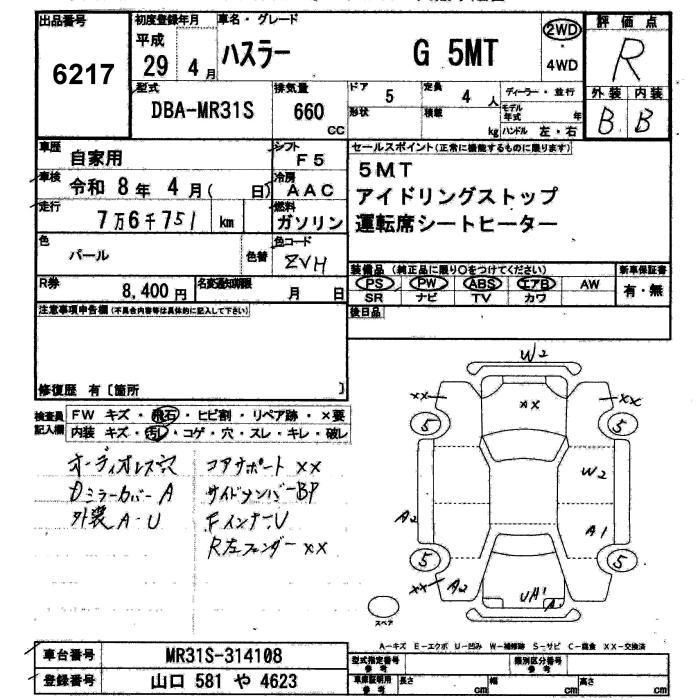 出品番号
6217
初度登録年月
平成
29年 4月
車名・グレード
ハスラー G 5MT
2WD
4WD
評価点
R
外装 内装
B B
型式
DBA-MR31S
排気量
660
CC
ドア
5
定員
4 人
形状
積載
kg
ディーラー・並行
モデル年式 年
ハンドル 左・右
車歴
自家用
シフト
F5
車検
令和 8年 4月( 日)
冷房
AAC
走行
7万6千751 km
燃料
ガソリン
色
パール
色替
色コード
ZVH
R券
8,400 円
名変通知期限
月 日
セールスポイント(正常に機能するものに限ります)
5MT
アイドリングストップ
運転席シートヒーター
装備品 (純正品に限り○をつけてください)
PS PW ABS エアB AW
SR ナビ TV カワ
新車保証書
有・無
後日品
注意事項申告欄(不具合内容等は具体的に記入して下さい)
修復歴 有〔箇所 〕
検査員記入欄
FW キズ・飛石・ヒビ割・リペア跡・×要
内装 キズ・汚レ・コゲ・穴・スレ・キレ・破レ
オーディオレス
Dミラーカバー A
外装 A・U
コアサポート ××
サイドメンバー BP
FインナーU
R左フェンダー ××
W2
××
××
××
5
5
W2
A2
A1
5
5
××
A2
UA1
A1
スペア
A-キズ E-エクボ U-凹み W-補修跡 S-サビ C-腐食 ××-交換済
車台番号
MR31S-314108
登録番号
山口 581 や 4623
型式指定番号
参考
類別区分番号
参考
車庫証明用
参考
長さ cm
幅 cm
高さ cm